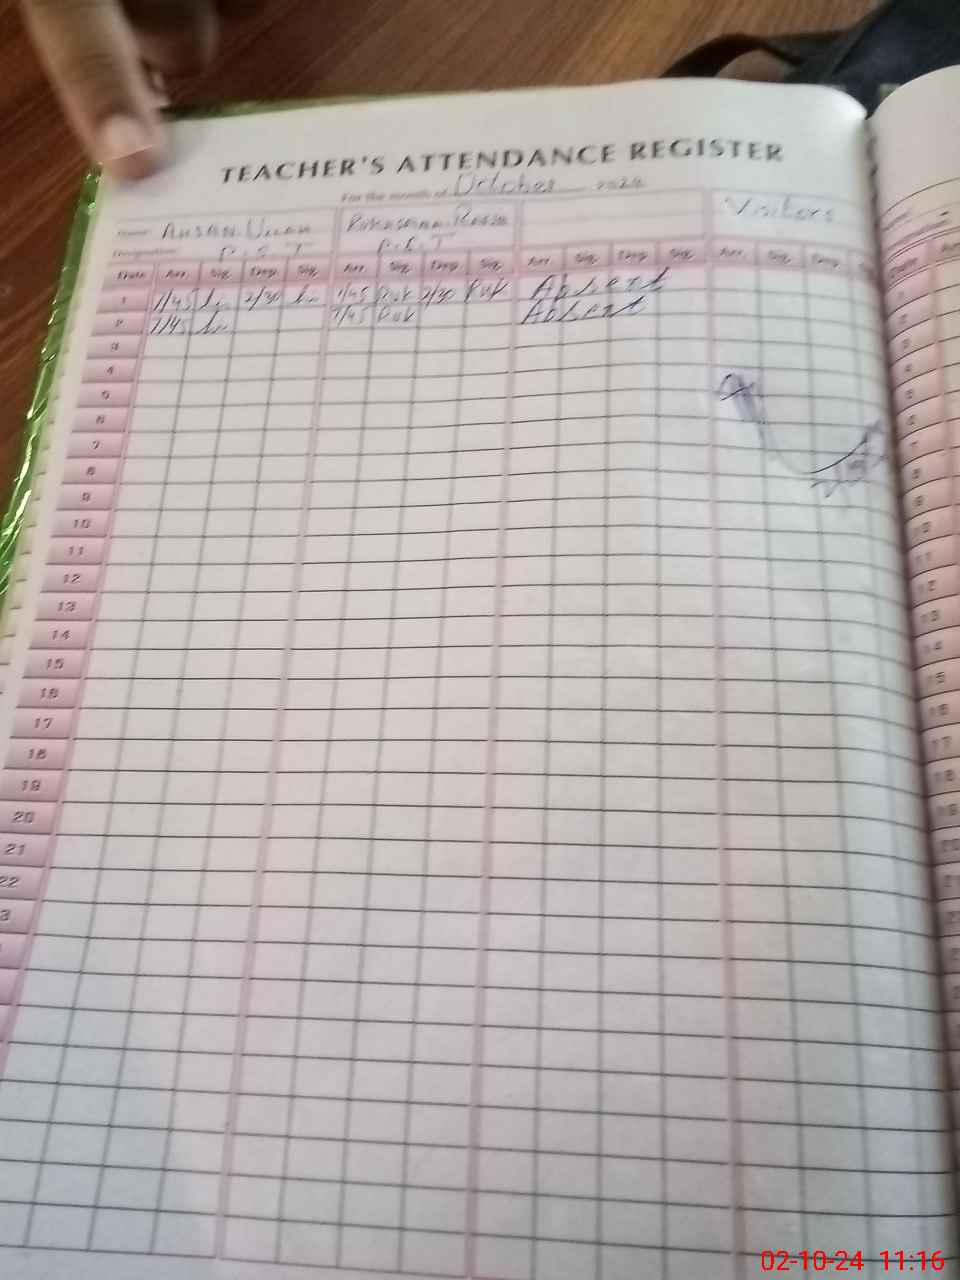 TEACHER'S ATTENDANCE REGISTER
For the month of October 2024
Name Ahsan Ullah Visitors
Designation P.S.T P.S.T
Date Arr. Sig. Dep. Sig. Arr. Sig. Dep. Sig. Arr. Sig. Dep. Sig. Arr. Sig. Dep.
1 7/45 2/30 7/45 Ruk 2/30 Ruk Absent
2 7/45 7/45 Ruk Absent
3
4
5
6
7
8
9
10
11
12
13
14
15
16
17
18
19
20
21
22
3
Date
1
2
3
4
5
6
7
8
9
10
11
12
13
14
15
16
17
18
19
20
02-10-24 11:16